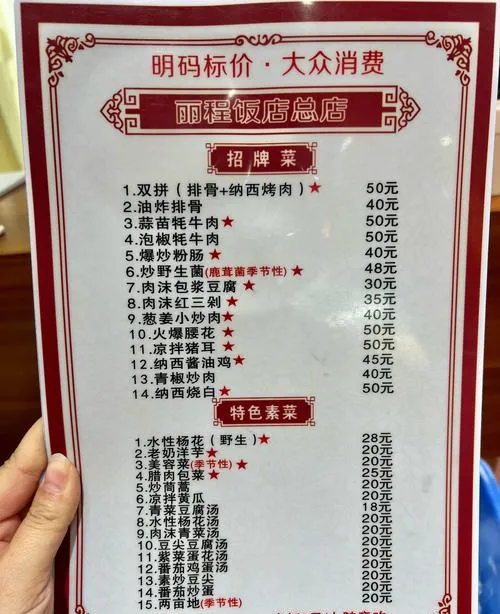 明码标价·大众消费
丽程饭店总店
招牌菜
1.双拼（排骨+纳西烤肉）★ 50元
2.油炸排骨 40元
3.蒜苗牦牛肉★ 50元
4.泡椒牦牛肉 50元
5.爆炒粉肠★ 40元
6.炒野生菌(鹿茸菌季节性)★ 48元
7.肉沫包浆豆腐★ 30元
8.肉沫红三剁★ 35元
9.葱姜小炒肉★ 40元
10.火爆腰花★ 50元
11.凉拌猪耳★ 50元
12.纳西酱油鸡★ 45元
13.青椒炒肉 40元
14.纳西烧白★ 50元
特色素菜
1.水性杨花（野生）★ 28元
2.老奶洋芋★ 20元
3.美容菜(季节性)★ 20元
4.腊肉包菜★ 25元
5.炒茼蒿 20元
6.凉拌黄瓜 20元
7.青菜豆腐汤 18元
8.水性杨花汤 20元
9.肉沫青菜汤 20元
10.豆尖豆腐汤 20元
11.紫菜蛋花汤 20元
12.番茄鸡蛋汤 20元
13.素炒豆尖 20元
14.番茄炒蛋 20元
15.两亩地(季节性) 20元